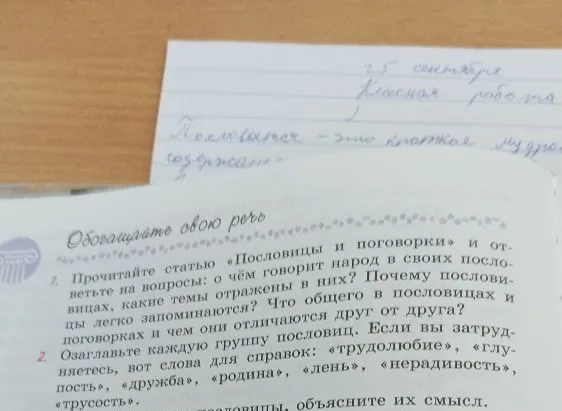 25 сентября
Класная работа
Пословится – это краткая мудро
содержан
Обогащайте свою речь
1. Прочитайте статью «Пословицы и поговорки» и от-
ветьте на вопросы: о чём говорит народ в своих посло-
вицах, какие темы отражены в них? Почему послови-
цы легко запоминаются? Что общего в пословицах и
поговорках и чем они отличаются друг от друга?
2. Озаглавьте каждую группу пословиц. Если вы затруд-
няетесь, вот слова для справок: «трудолюбие», «глу-
пость», «дружба», «родина», «лень», «нерадивость»,
«трусость».
пословицы, объясните их смысл.